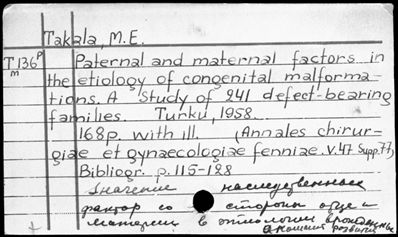 Takala, M.E.
T136 p m Paternal and maternal factors in
the etiology of congenital malforma-
tions. A study of 241 defect-bearing
families. Turku, 1958.
168p. with ill. (Annales chirur-
giae et gynaecologiae fenniae. v.47 Supp.77)
Bibliogr. p.115-128
Значение наследственных
фактор со стороны отца и
матери в этиологии врожденных
аномалий развития